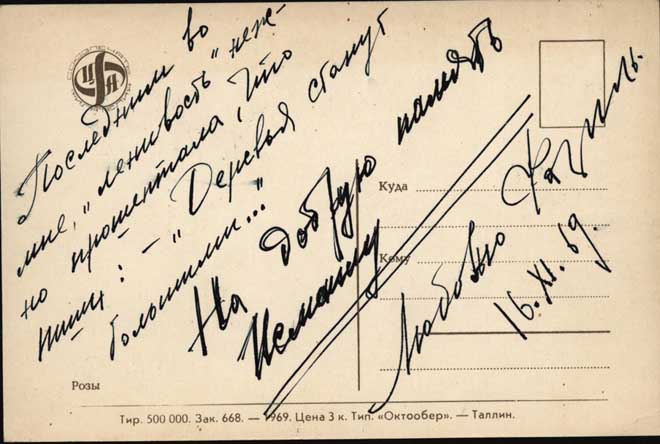 Последним во
мне, "ленивость" неж-
но прошептала, что
пишу: – "Деревья станут
большими..."
На добрую память
Исмаилу
Любовью
16.XI.69.
Куда
Кому
Розы
Тир. 500 000. Зак. 668. — 1969. Цена 3 к. Тип. «Октообер». — Таллин.